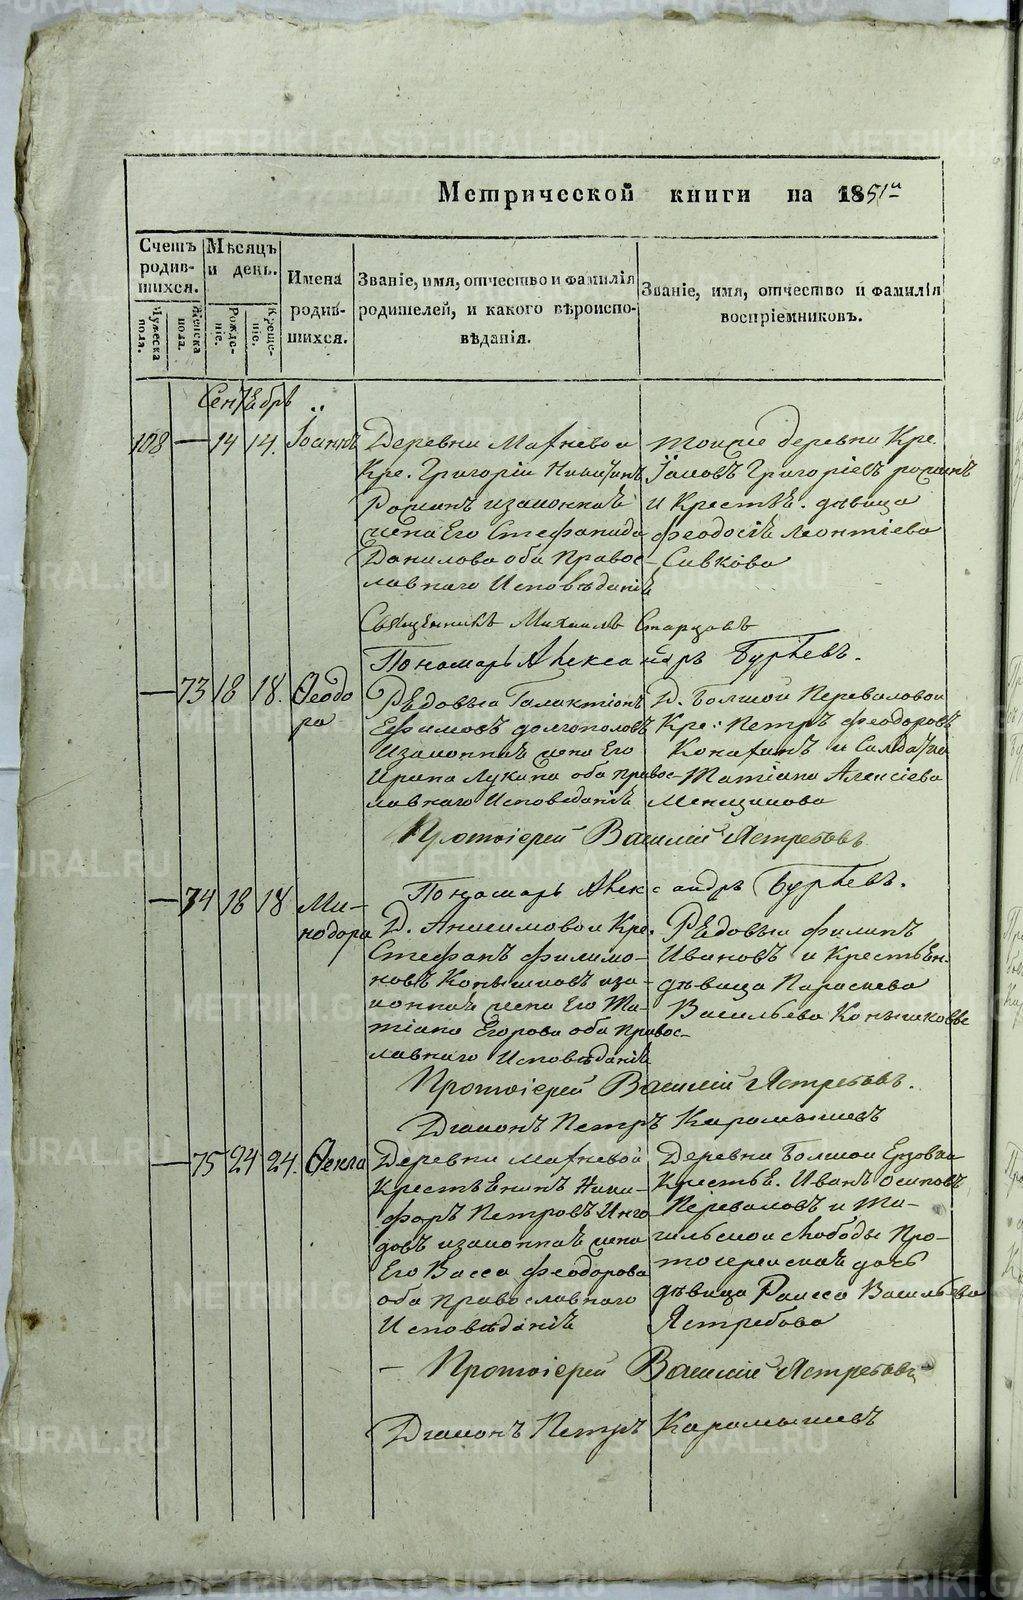 Метрической книги на 1851й
Счетъ родив-шихся.
Мѣсяцъ и день.
Имена родив-шихся.
Званіе, имя, отчество и фамилія родителей, и какого вѣроиспо-вѣданія.
Званіе, имя, отчество и фамилія воспріемниковъ.
Мужеска пола.
Женска пола.
Рожде-ніе.
Креще-ніе.
Сентябрь
108 — 14 14. Іоаннъ
Деревни Махневой
Кре. Григорій Никитинъ
Рощинъ изаконная
жена Его Стефанида
Данилова оба Правос-
лавнаго Исповѣданія
тойже деревни Кре.
Іаковъ Григоріевъ рощинъ
и Крестья. дѣвица
Феодосія Леонтіева
Савкова
Священникъ Михаилъ Старцовъ
Пономарь Александръ Бурчевъ.
— 73 18 18. Ѳеодо
ра
Рядовый Галактіонъ
Ефимовъ долгополовъ
Изаконная жена Его
Ирина Лукина оба правос-
лавнаго Исповеданія
Д. Болшой Переваловой
Кре: Петръ Феодоровъ
Конахинъ и Салдатка
Татіана Алексіева
Менщикова
Протоіерей Василій Ястребовъ
Пономарь Александръ Бурчевъ.
— 74 18 18 Ми-
нодора
Д. Анисимовой Кре.
Стефанъ Филимо-
новъ Конышковъ иза-
конная жена Его Та-
тіана Егорова оба Правос-
лавнаго Исповѣданія
Рядовый Филипъ
Ивановъ и Крестьян.
дѣвица Параскева
Васильева Конышковы
Протоіерей Василій Ястребовъ.
Діаконъ Петръ Карамышевъ
— 75 24 24. Ѳекла
Деревни Махневой
Крестьянинъ Ники-
форъ Петровъ
изаконная жена
Его Васса Феодорова
оба Православнаго
Исповѣданія
Деревни Болшой Ерзовки
Крестья. Иванъ Осиповъ
Переваловъ и Та-
гильской слободы Про-
тоіерейская дочь
дѣвица Раисса Васильева
Ястребова
— Протоіерей Василій Ястребовъ
Діаконъ Петръ Карамышевъ
METRIKI.GASO-URAL.RU